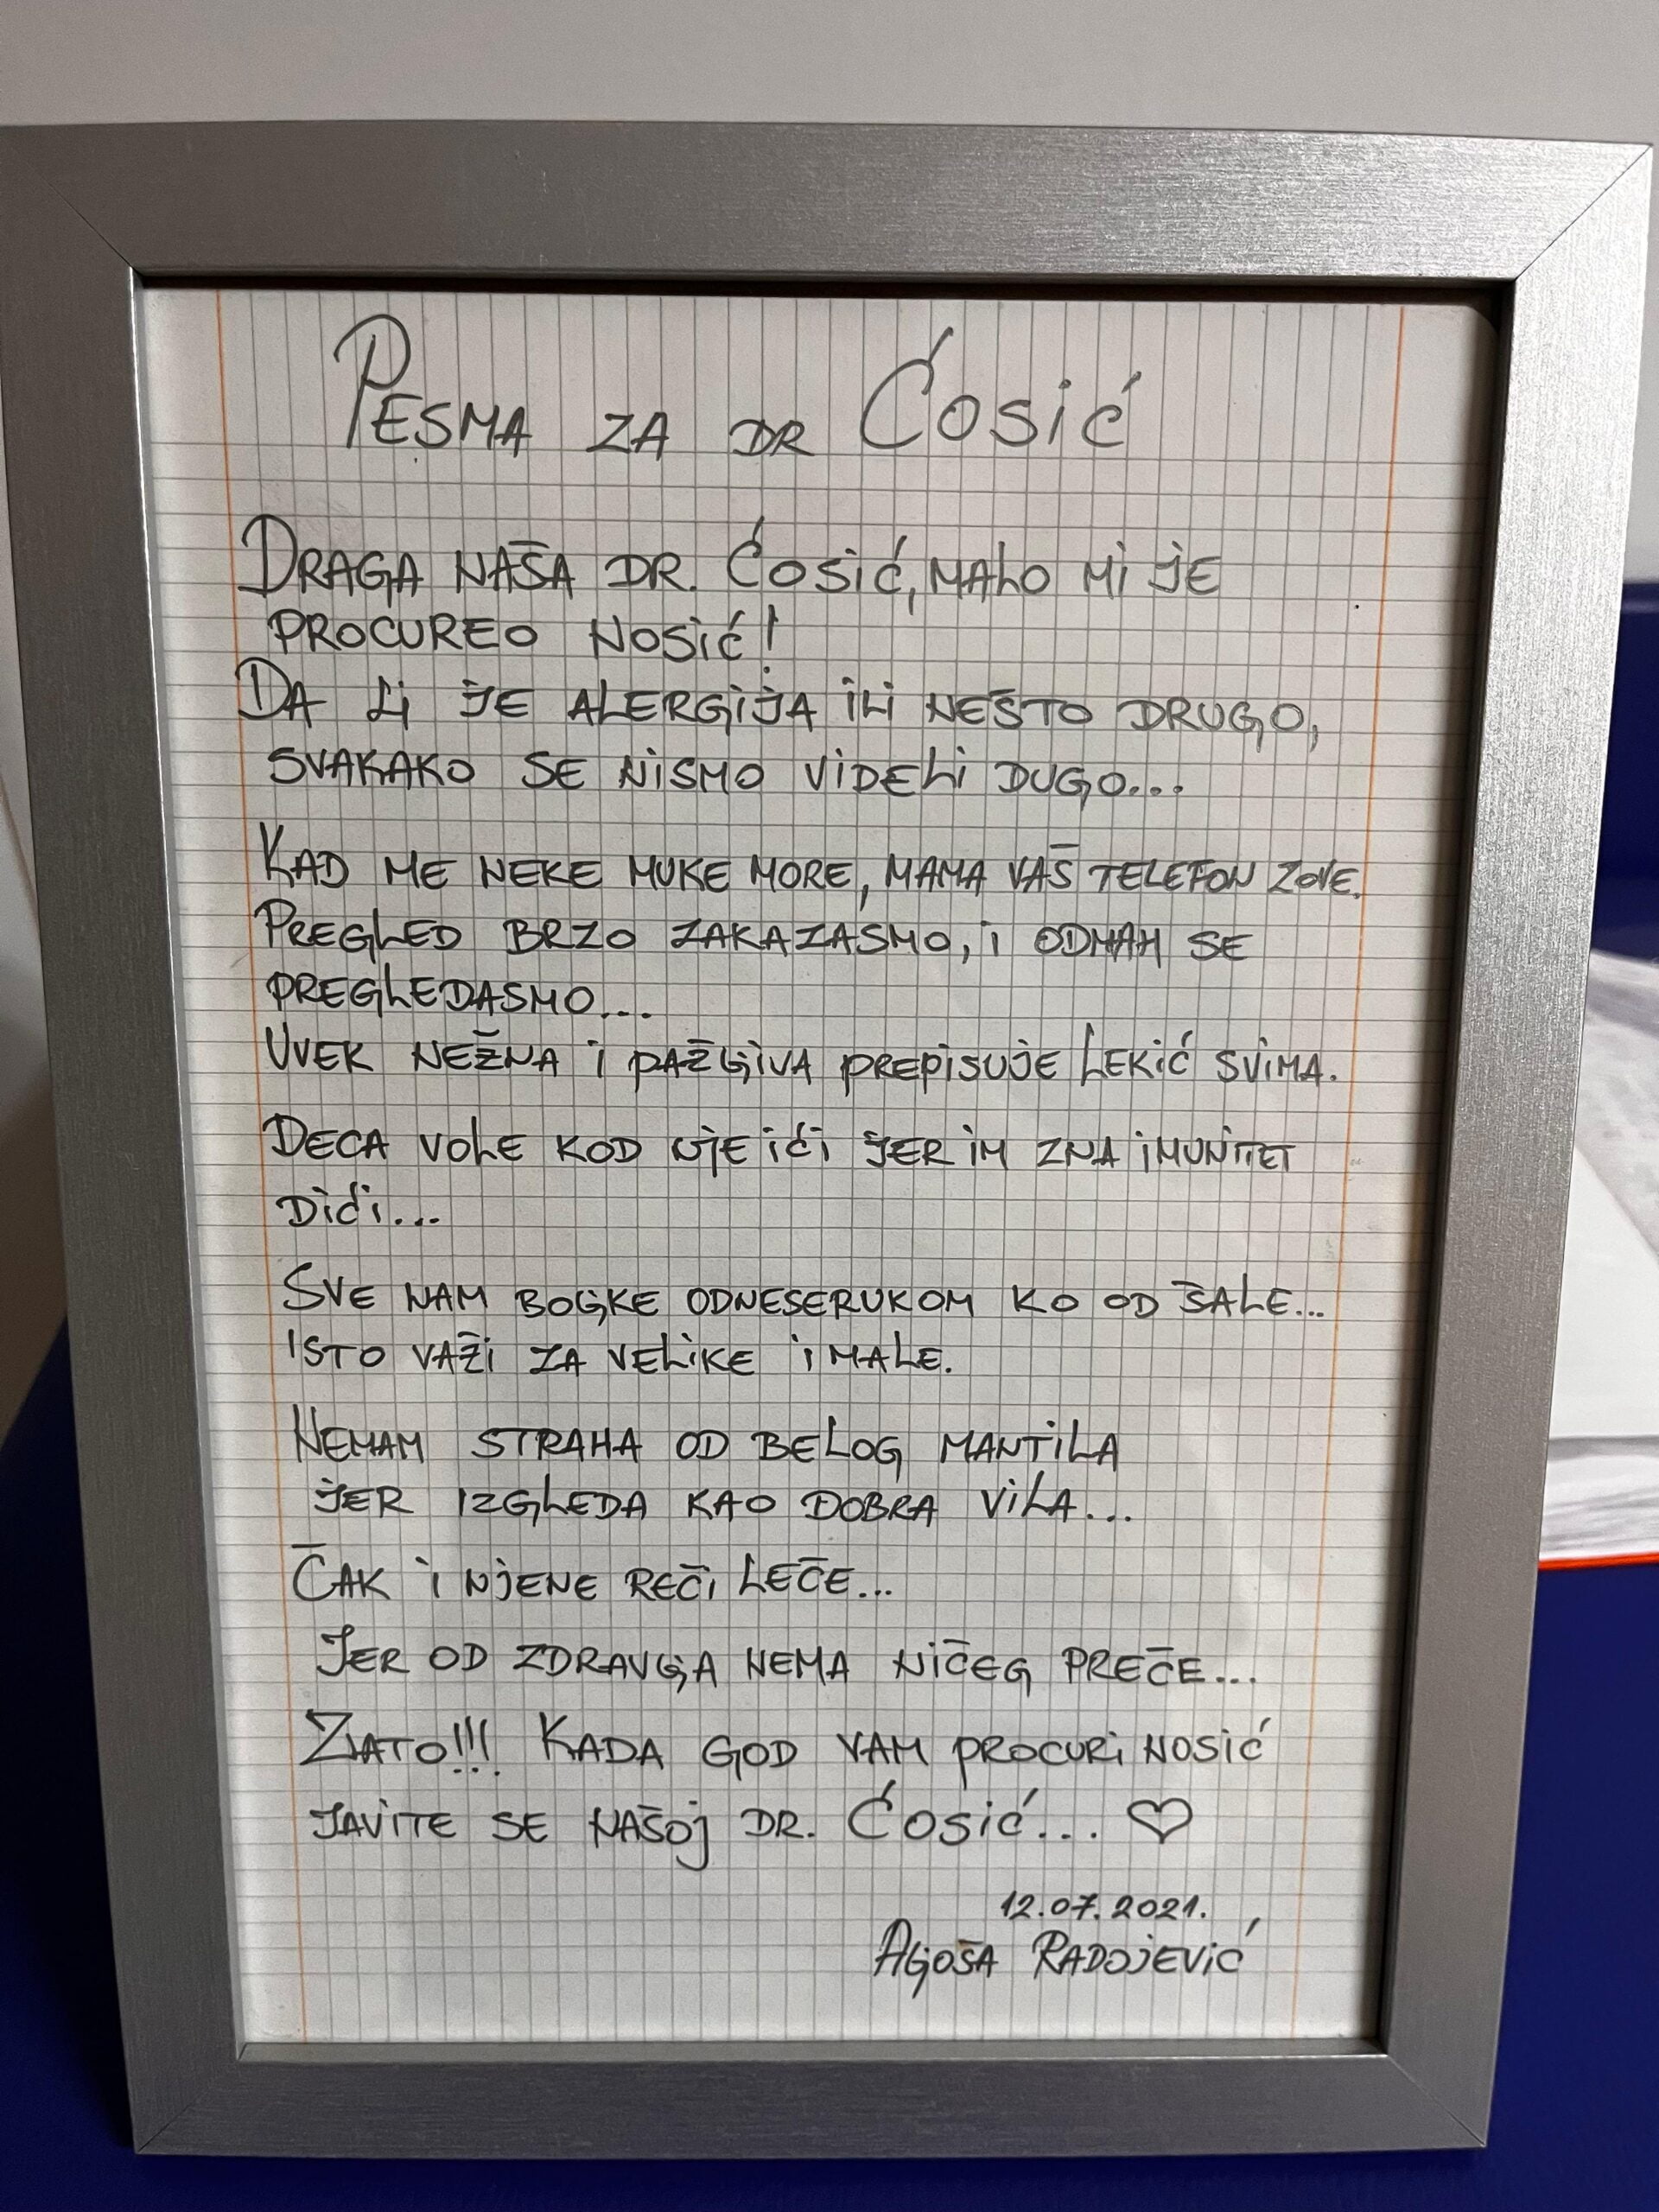 PESMA ZA DR ĆOSIĆ
DRAGA NAŠA DR. ĆOSIĆ, MALO MI JE
PROCUREO NOSIĆ!
DA LI JE ALERGIJA ILI NEŠTO DRUGO,
SVAKAKO SE NISMO VIDELI DUGO...
KAD ME NEKE MUKE MORE, MAMA VAŠ TELEFON ZOVE.
PREGLED BRZO ZAKAZASMO, I ODMAH SE
PREGLEDASMO...
UVEK NEŽNA I PAŽLJIVA PREPISUJE LEKIĆ SVIMA.
DECA VOLE KOD NJE IĆI JER IM ZNA IMUNITET
DIĆI...
SVE NAM BOLJKE ODNESERUKOM KO OD ŠALE...
ISTO VAŽI ZA VELIKE I MALE.
NEMAM STRAHA OD BELOG MANTILA
JER IZGLEDA KAO DOBRA VILA...
ČAK I NJENE REČI LEČE...
JER OD ZDRAVLJA NEMA NIČEG PREČE...
ZATO!!! KADA GOD VAM PROCURI NOSIĆ
JAVITE SE NAŠOJ DR. ĆOSIĆ... ♡
12.07.2021.
ALJOŠA RADOJEVIĆ